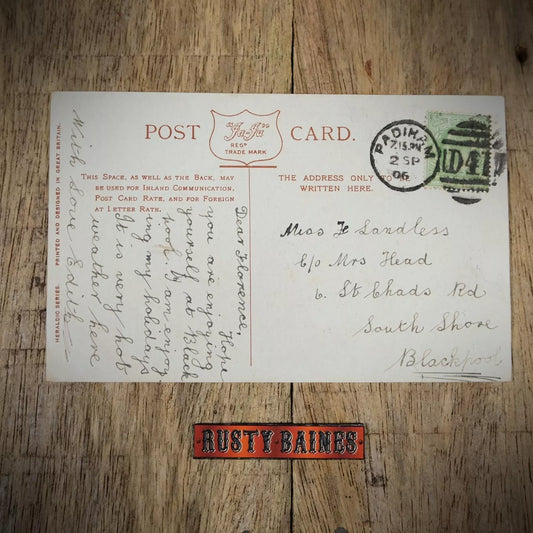 POST CARD.
"Ja-Ja"
REGD
TRADE MARK
THIS SPACE, AS WELL AS THE BACK, MAY
BE USED FOR INLAND COMMUNICATION,
POST CARD RATE, AND FOR FOREIGN
AT LETTER RATE.
THE ADDRESS ONLY TO BE
WRITTEN HERE.
HERALDIC SERIES. PRINTED AND DESIGNED IN GREAT BRITAIN.
Dear Florence,
Hope
you are enjoying
yourself at Black
pool I am enjoy
ing my holidays
It is very hot
weather here
With Love Edith
Miss F Sandless
c/o Mrs Head
6. St Chads Rd
South Shore
Blackpool
PADIHAM
7.15.PM
2 SP
06
D41
RUSTY·BAINES